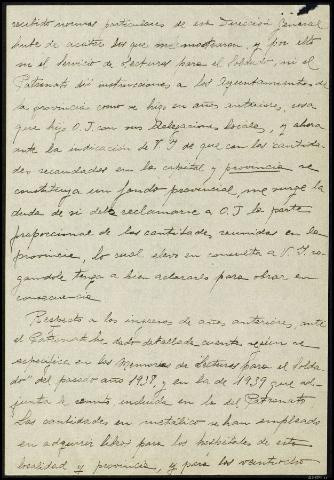 recibido normas particulares de esa Dirección General
hube de acatar las que me mostraron, y por ello
ni el Servicio de Lecturas para el Soldado, ni el
Patronato dió instrucciones a los Ayuntamientos de
la provincia como se hizo en años anteriores, cosa
que hizo O.J. con sus Delegaciones locales, y ahora
ante la indicación de V.I. de que con las cantida-
des recaudadas en la capital y provincia se
constituya un fondo provincial, me surge la
duda de si debe reclamarse a O.J. la parte
proporcional de las cantidades reunidas en la
provincia, lo cual elevo en consulta a V.I. ro-
gandole tenga a bien aclararlo para obrar en
consecuencia.
Respecto a los ingresos de años anteriores, ante
el Patronato he dado detallada cuenta según se
especifica en las Memorias de "Lecturas para el Solda-
do" del pasado año 1938, y en la de 1939 que ad-
junta le remito incluida en la del Patronato.
Las cantidades en metálico se han empleado
en adquirir libros para los hospitales de esta
localidad y provincia, y para los veintiocho